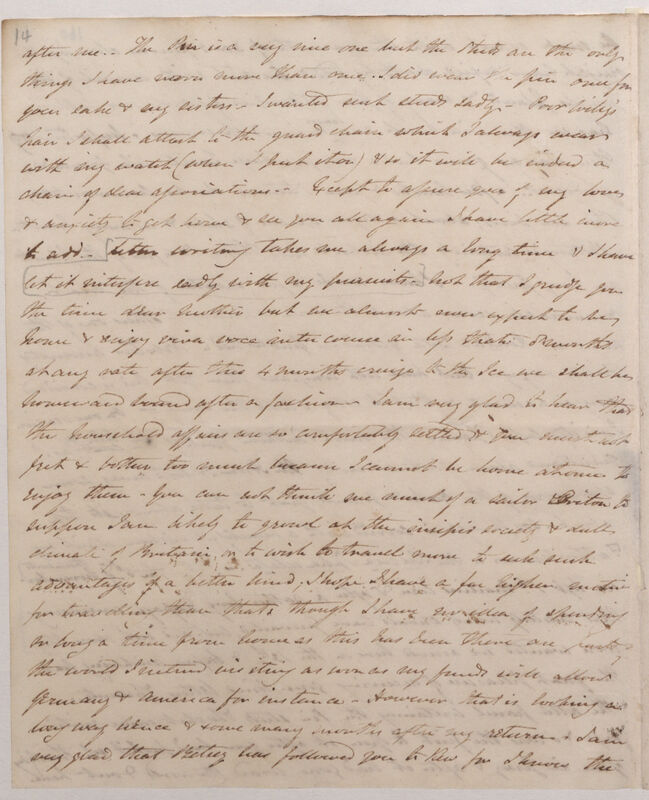 14
after me.. The Pin is a very nice one but the studs are the only
things I have worn more than once. I did wear the pin once for
your sake & my sisters - I wanted such studs sadly - Poor Willy's
hair I shall attach to the guard chain which I always wear
with my watch (when I put it on) & so it will be indeed a
chain of dear associations.- Except to assure you of my love
& anxiety to get home & see you all again I have little more
to add. - [letter writing takes me always a long time & I have
let it interfere sadly with my pursuits -] not that I grudge you
the time dear Mother but we almost now expect to be
home & enjoy viva voce intercourse in less than months
at any rate after this 4 months cruize to the Ice we shall be
homeward bound after a fashion - I am very glad to hear that
the household affairs are so comfortably settled & you must not
fret & bother too much because I cannot be home at once to
enjoy them - You can not think me much of a sailor Briton to
suppose I am likely to growl at the insipid society & dull
climate of Britain, or to wish to travel more to seek such
advantages of a better kind, I hope I have a far higher motive
for travelling than that, though I have no idea of spending
so long a time from home as this has been There are parts
the world I intend visiting as soon as my funds will allow
Germany & America for instance - However that is looking a
long way hence & some many months after my return - I am
very glad that Betsy has followed you to Kew for I know the